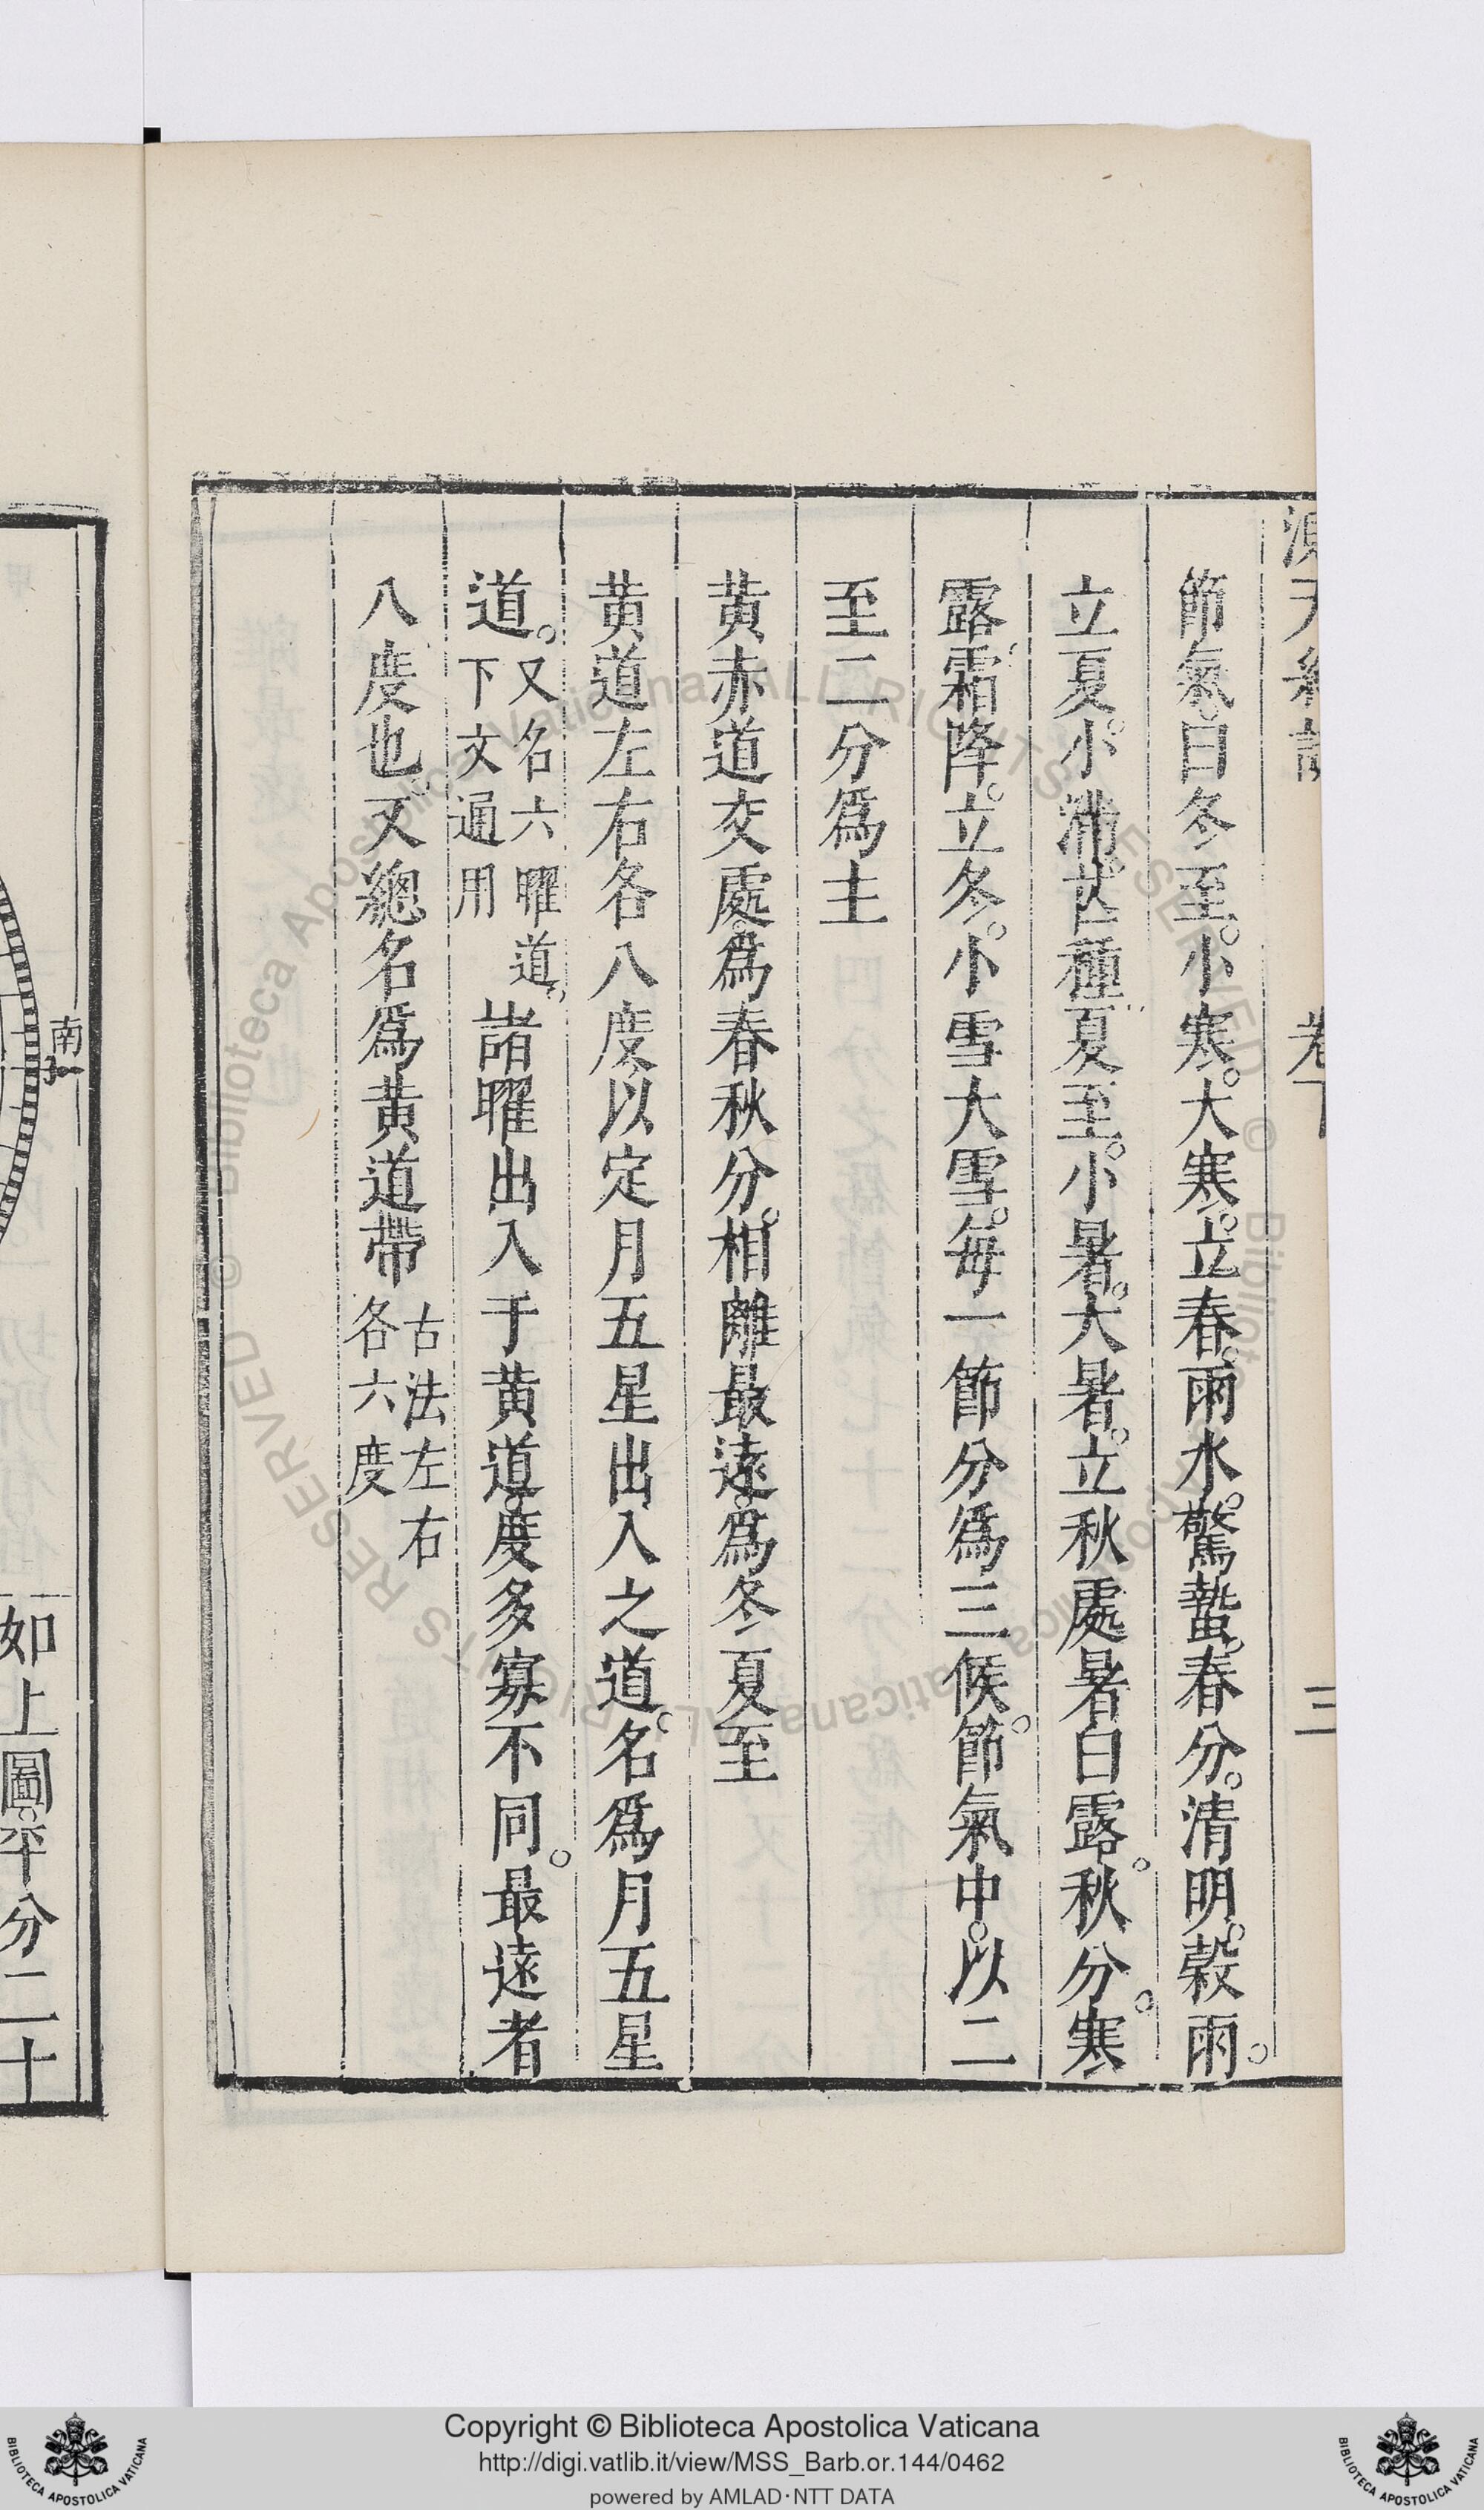 卷
三
節氣。曰冬至。小寒。大寒。立春。雨水。驚蟄。春分。清明。穀雨。
立夏。小滿。芒種。夏至。小暑。大暑。立秋處暑白露。秋分。寒
露。霜降。立冬。小雪大雪。每一節分爲三候。節氣中。以二
至二分爲主
黃赤道交處。爲春秋分。相離最遠。爲冬夏至
黃道左右各八度以定月五星出入之道。名爲月五星
道。又名六曜道。下文通用諸曜出入于黃道。度多寡不同。最遠者
八度也。又總名爲黃道帶古法左右各六度
南
如上圖。平分二十
Copyright © Biblioteca Apostolica Vaticana
http://digi.vatlib.it/view/MSS_Barb.or.144/0462
powered by AMLAD·NTT DATA